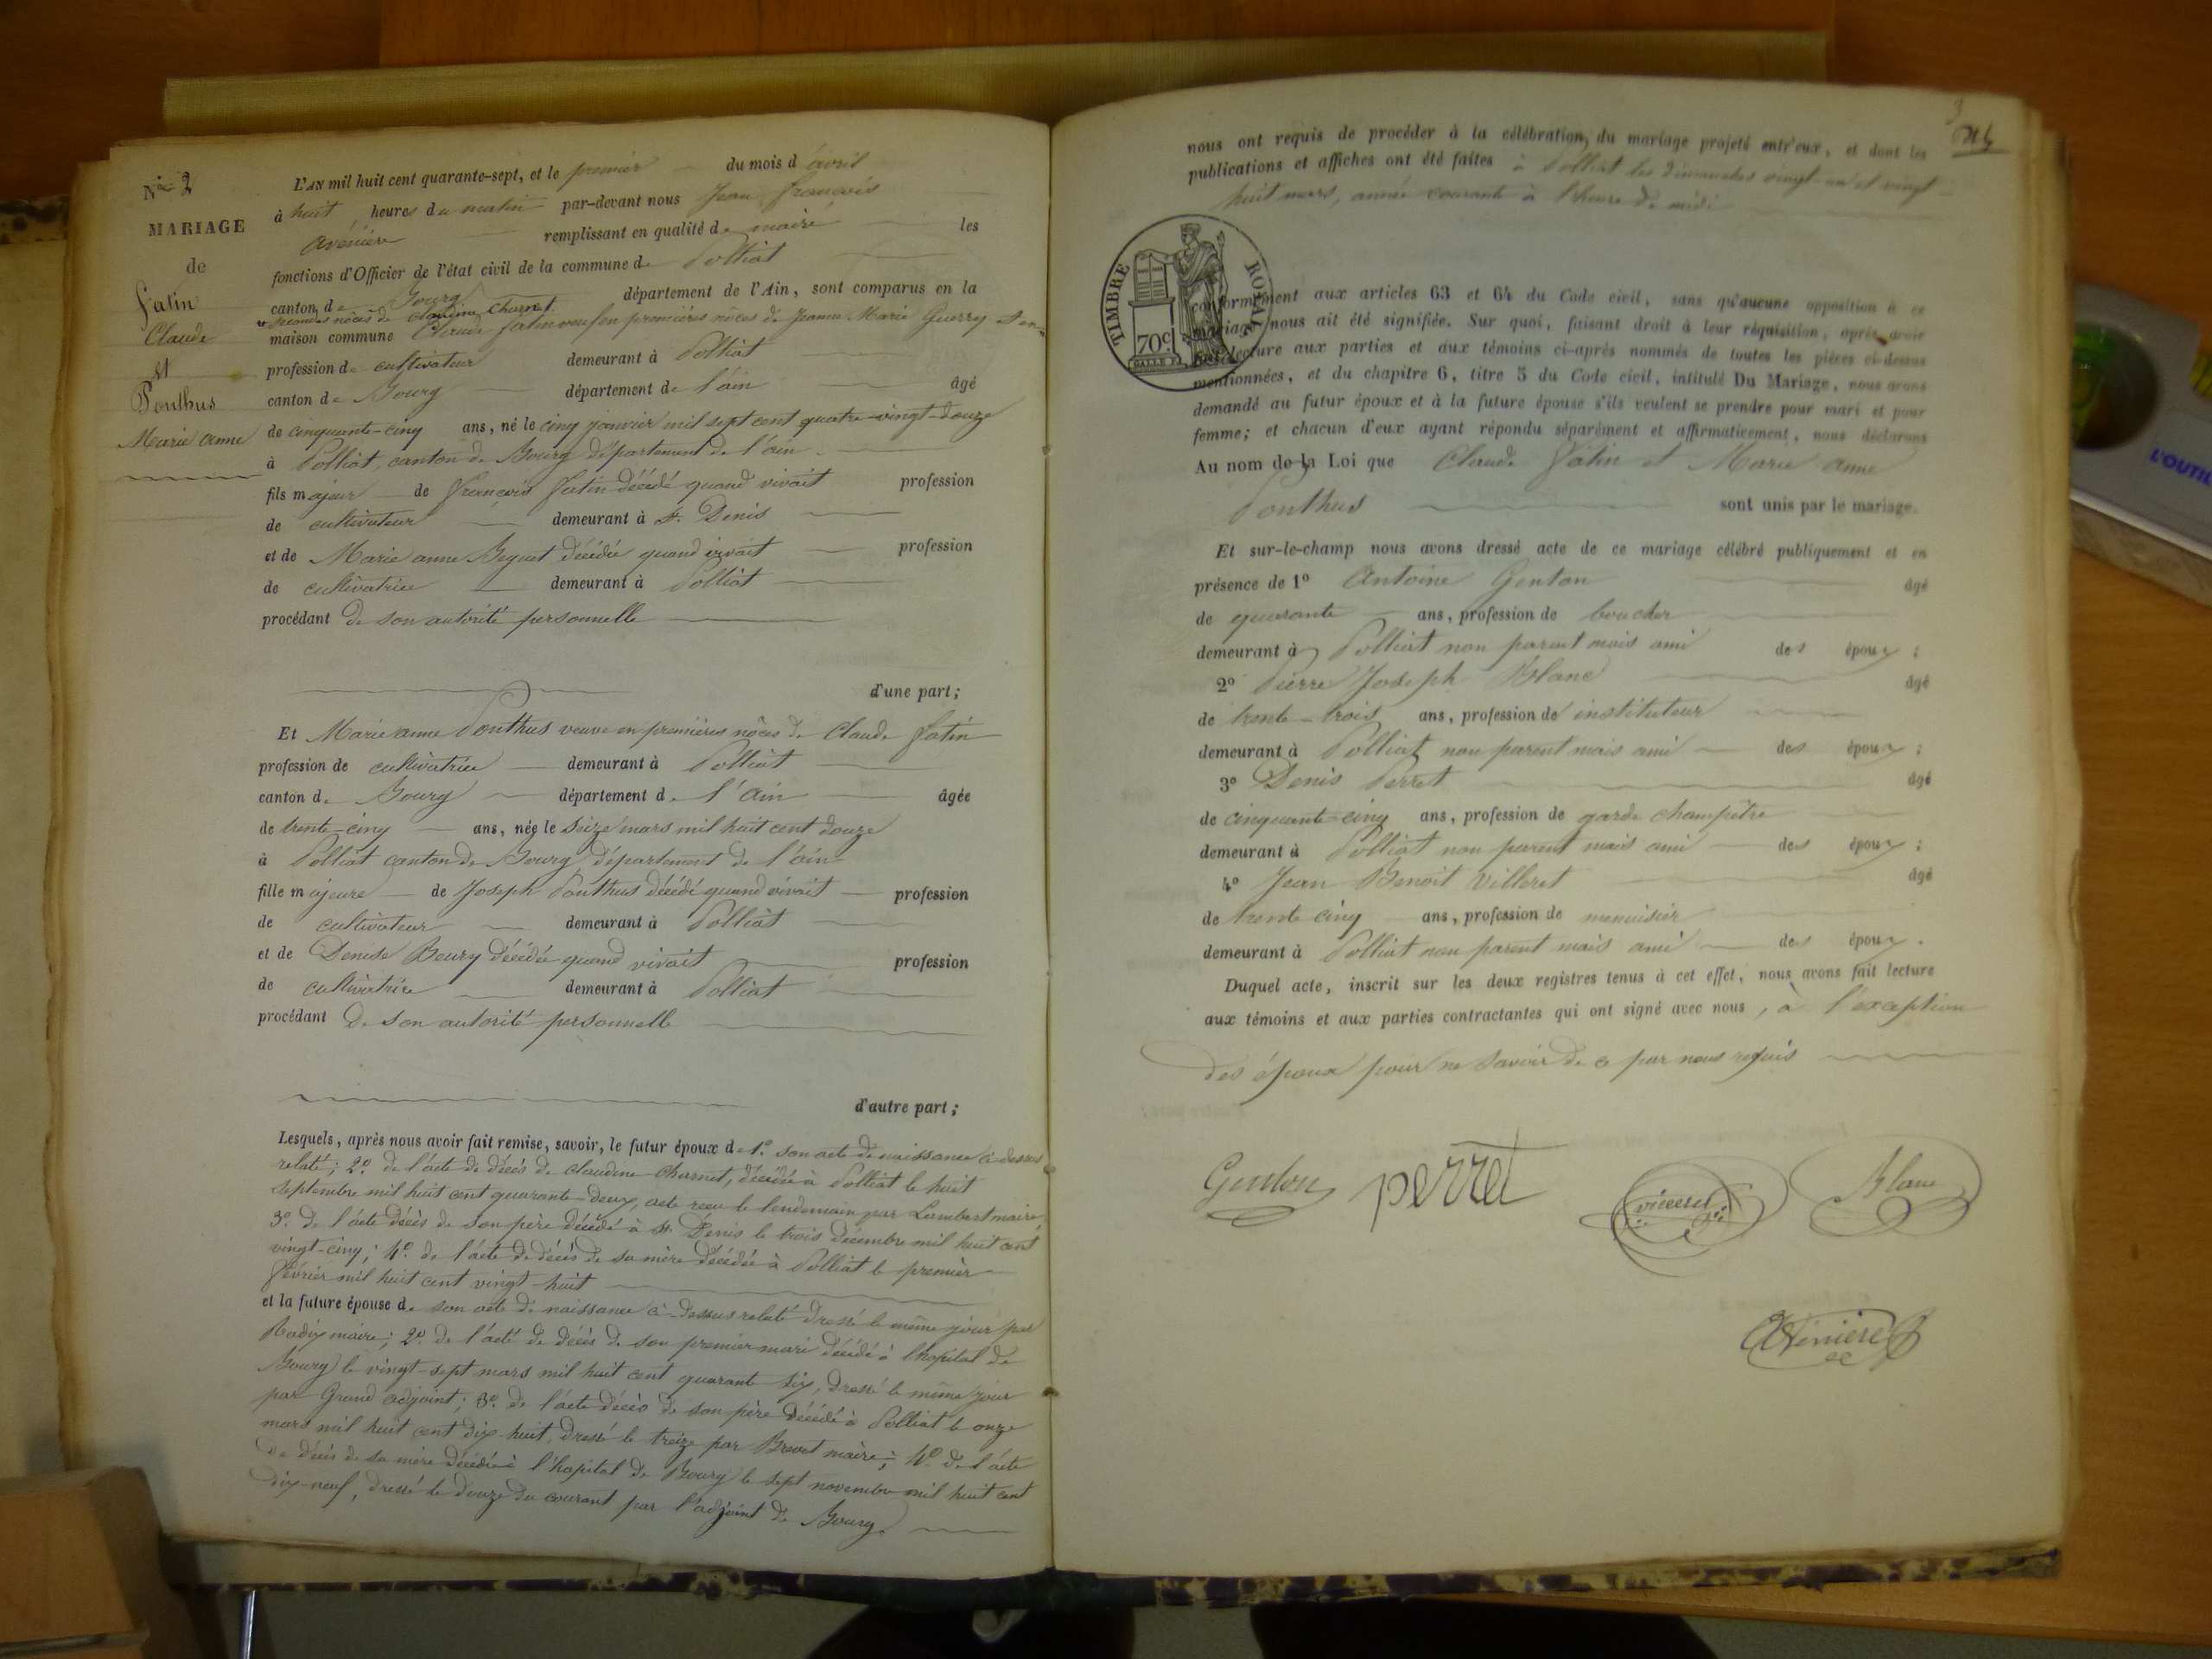 N° 2
MARIAGE
de
Fatin
Claude
et
Ponthus
Marie anne
L'AN mil huit cent quarante-sept, et le premier du mois d avril
à huit heures du matin par-devant nous Jean François
avénière remplissant en qualité de maire les
fonctions d'Officier de l'état civil de la commune de Polliat
canton de Bourg département de l'Ain, sont comparus en la
secondes nôces de Claudine Charnet
maison commune Claude fatin veuf en premières nôces de Jeanne Marie Guerry
profession de cultivateur demeurant à Polliat
canton de Bourg département de l'ain âgé
de cinquante-cinq ans, né le cinq janvier mil sept cent quatre-vingt-douze
à Polliat, canton de Bourg département de l'ain
fils majeur de François Fatin décédé quand vivait profession
de cultivateur demeurant à St. Denis
et de Marie anne Beguet décédée quand vivait profession
de cultivatrice demeurant à Polliat
procédant de son autorité personnelle
d'une part;
Et Marie anne Ponthus veuve en premières nôces de Claude fatin
profession de cultivatrice demeurant à Polliat
canton de Bourg département de l'Ain âgée
de trente-cinq ans, née le seize mars mil huit cent douze
à Polliat canton de Bourg département de l'ain
fille majeure de Joseph Ponthus décédé quand vivait profession
de cultivateur demeurant à Polliat
et de Denise Beury décédée quand vivait profession
de cultivatrice demeurant à Polliat
procédant de son autorité personnelle
d'autre part;
Lesquels, après nous avoir fait remise, savoir, le futur époux de 1°. son acte de naissance ci-dessus
relaté; 2°. de l'acte de décès de claudine Charnet, décédée à Polliat le huit
septembre mil huit cent quarante-deux, acte reçu le lendemain par Lambert maire,
3°. de l'acte décès de son père décédé à St. Denis le trois décembre mil huit cent
vingt-cinq; 4°. de l'acte de décès de sa mère décédée à Polliat le premier
février mil huit cent vingt-huit
et la future épouse de son acte de naissance ci-dessus relaté dressé le même jour par
Radix maire; 2°. de l'acte de décès de son premier mari décédé à l'hopital de
Bourg le vingt-sept mars mil huit cent quarante-six, dressé le même jour
par Grand adjoint; 3°. de l'acte décès de son père décédé à Polliat le onze
mars mil huit cent dix-huit, dressé le treize par Brevet maire; 4°. de l'acte
de décès de sa mère décédée à l'hopital de Bourg le sept novembre mil huit cent
dix-neuf, dressé le douze du courant par l'adjoint de Bourg.
nous ont requis de procéder à la célébration du mariage projeté entr'eux, et dont les
publications et affiches ont été faites à Polliat les dimanches vingt-un et vingt
huit mars, année courante à l'heure de midi
TIMBRE ROYAL
70c
conformément aux articles 63 et 64 du Code civil, sans qu'aucune opposition à ce
mariage nous ait été signifiée. Sur quoi, faisant droit à leur réquisition, après avoir
fait lecture aux parties et aux témoins ci-après nommés de toutes les pièces ci-dessus
mentionnées, et du chapitre 6, titre 5 du Code civil, intitulé Du Mariage, nous avons
demandé au futur époux et à la future épouse s'ils veulent se prendre pour mari et pour
femme; et chacun d'eux ayant répondu séparément et affirmativement, nous déclarons
Au nom de la Loi que Claude Fatin et Marie anne
Ponthus sont unis par le mariage.
Et sur-le-champ nous avons dressé acte de ce mariage célébré publiquement et en
présence de 1° Antoine Genton âgé
de quarante ans, profession de boucher
demeurant à Polliat non parent mais ami des époux;
2° Pierre Joseph Blanc âgé
de trente-trois ans, profession de instituteur
demeurant à Polliat non parent mais ami des époux;
3° Denis Perret âgé
de cinquante-cinq ans, profession de garde champêtre
demeurant à Polliat non parent mais ami des époux;
4° Jean Benoit Villeret âgé
de trente cinq ans, profession de menuisier
demeurant à Polliat non parent mais ami des époux.
Duquel acte, inscrit sur les deux registres tenus à cet effet, nous avons fait lecture
aux témoins et aux parties contractantes qui ont signé avec nous, à l'exception
des époux pour ne savoir de ce par nous requis
Genton perret villeret Blanc
Avéniere
L'OUTIL